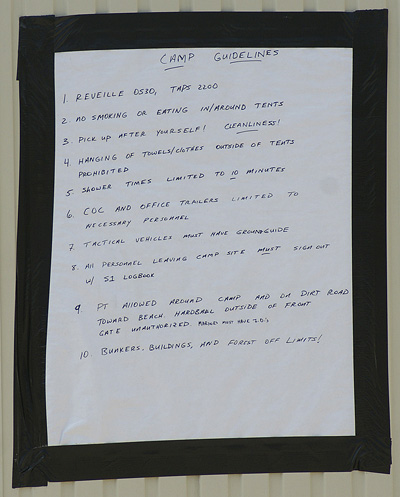 CAMP GUIDELINES
1. REVEILLE 0530, TAPS 2200
2. NO SMOKING OR EATING IN/AROUND TENTS
3. PICK UP AFTER YOURSELF! CLEANLINESS!
4. HANGING OF TOWELS/CLOTHES OUTSIDE OF TENTS
PROHIBITED
5. SHOWER TIMES LIMITED TO 10 MINUTES
6. COC AND OFFICE TRAILERS LIMITED TO
NECESSARY PERSONNEL
7. TACTICAL VEHICLES MUST HAVE GROUNDGUIDE
8. All PERSONNEL LEAVING CAMP SITE MUST SIGN OUT
W/ S1 LOGBOOK
9. PT ALLOWED AROUND CAMP AND ON DIRT ROAD
TOWARD BEACH. HARDBALL OUTSIDE OF FRONT
GATE UNAUTHORIZED. MUST HAVE I.D.'s
10. BUNKERS, BUILDINGS, AND FOREST OFF LIMITS!